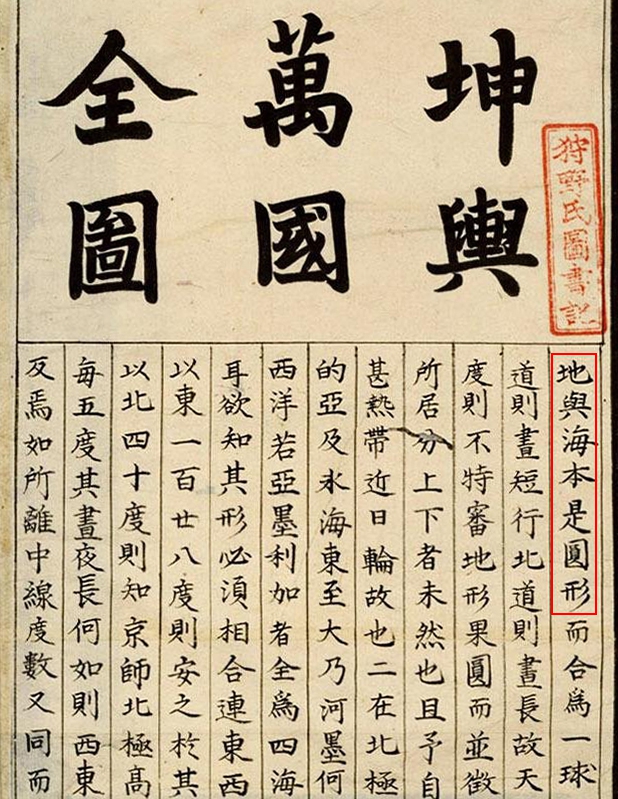 坤輿
萬國
全圖
狩野氏圖書記
地與海本是圓形而合為一球
道則晝短行北道則晝長故天
度則不特審地形果圓而並徵
所居分上下者未然也且予自
甚熱帶近日輪故也二在北極
的亞及氷海東至大乃河墨何
西洋若亞墨利加者全為四海
耳欲知其形必湏相合連東西
以東一百廿八度則安之扵其
以北四十度則知京師北極高
每五度其晝夜長何如則西東
反焉如所離中線度數又同而